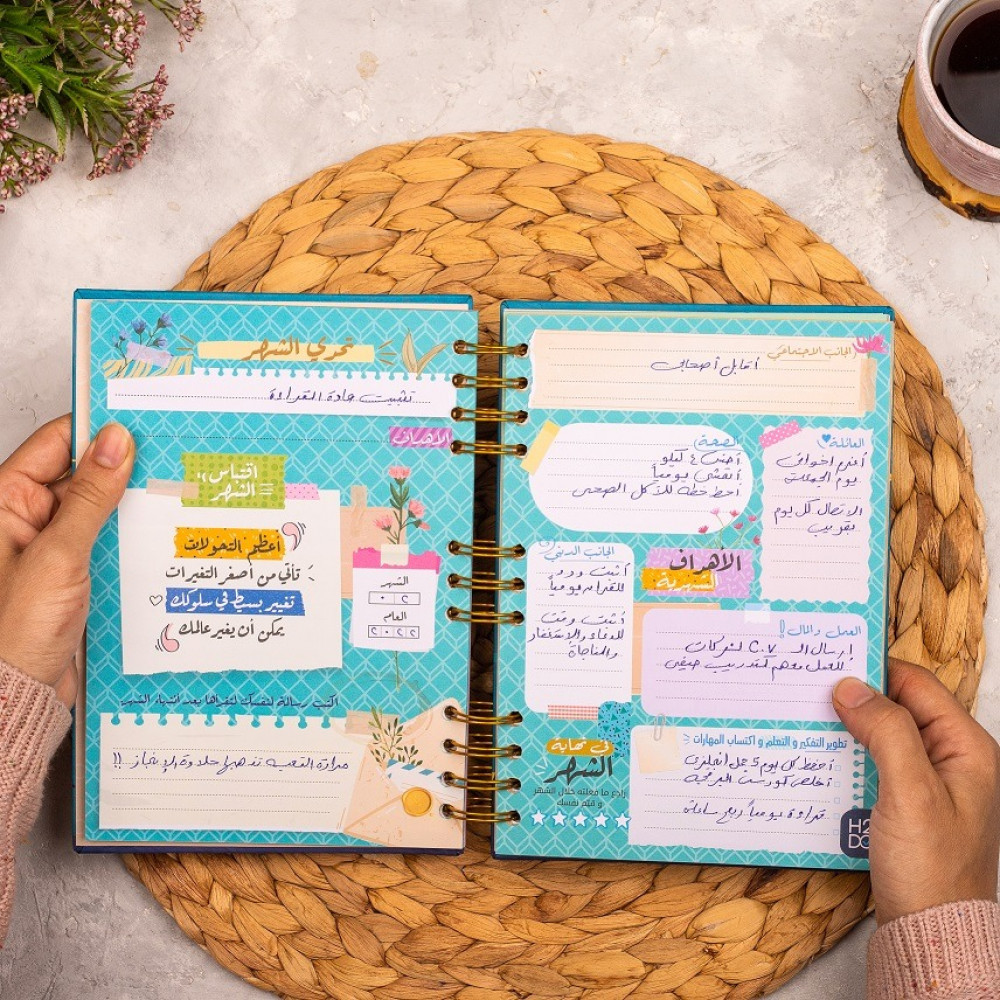 تحدي الشهر
تثبيت عادة القراءة
الأهداف
اقتباس
الشهر
أعظم التحولات
تأتي من أصغر التغيرات
تغيير بسيط في سلوكك
يمكن أن يغير عالمك
الشهر
٠٢
العام
٢٠٢٢
اكتب رسالة لنفسك لتقرأها بعد انتهاء الشهر
مرارة التعب تذهبها حلاوة الإنجاز..!!
الجانب الاجتماعي
أقابل أصحابي
العائلة
أفرم اخواتي
يوم الجمعات
الاتصال كل يوم
بقريب
الصحة
أخس ٤ كيلو
أتمشى يومياً
أحط خطة للأكل الصحي
الجانب الديني
أثبت ورد
للقرآن يومياً
أثبت وقت
للدعاء والإستغفار
والمناجاة
الأهداف
الشهرية
العمل والمال!
إرسال الـ C.V لشركات
للعمل معهم لتدريب صيفي
تطوير التفكير و التعلم و اكتساب المهارات
أحفظ كل يوم 5 جمل انجليزي
أخلص كورس البرمجة
قراءة يومياً ربع ساعة
في نهاية
الشهر
راجع ما فعلته خلال الشهر
و قيّم نفسك